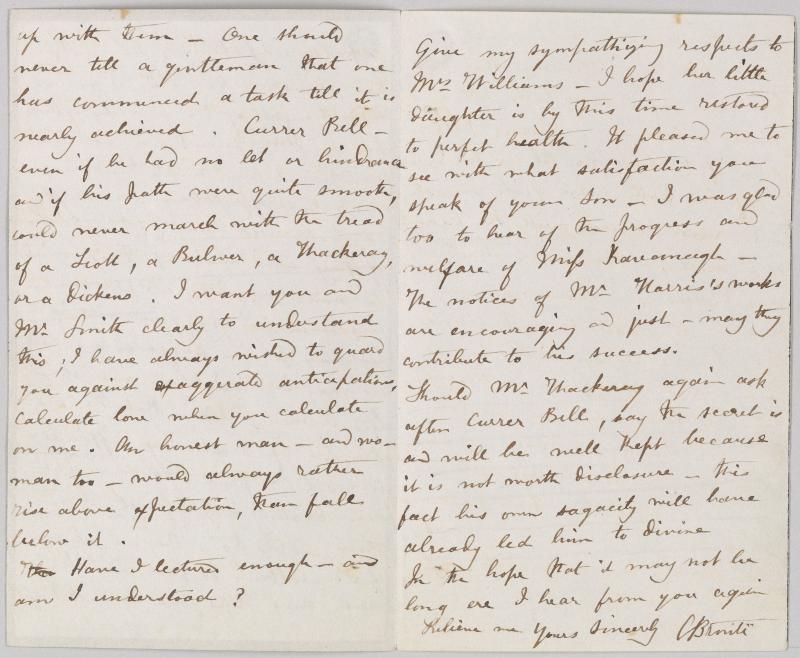 up with them – One should
never tell a gentleman that one
has commenced a task till it is
nearly achieved. Currer Bell –
even if he had no let or hindrance
and if his path were quite smooth,
could never march with the tread
of a Scott, a Bulwer, a Thackeray,
or a Dickens. I want you and
Mr. Smith clearly to understand
this; I have always wished to guard
you against exaggerated anticipations,
calculate low when you calculate
on me. An honest man – and wo-
man too – would always rather
rise above expectation, than fall
below it.
Have I lectured enough – and
am I understood?
Give my sympathizing respects to
Mrs Williams – I hope her little
daughter is by this time restored
to perfect health. It pleased me to
see with what satisfaction you
speak of your Son – I was glad
too to hear of the progress and
welfare of Miss Kavanagh –
The notices of Mr Harris's works
are encouraging and just – may they
contribute to his success.
Should Mr Thackeray again ask
after Currer Bell, say the secret is
and will be well kept because
it is not worth disclosure – this
fact his own sagacity will have
already led him to divine
In the hope that it may not be
long ere I hear from you again
Believe me Yours Sincerely C Brontë